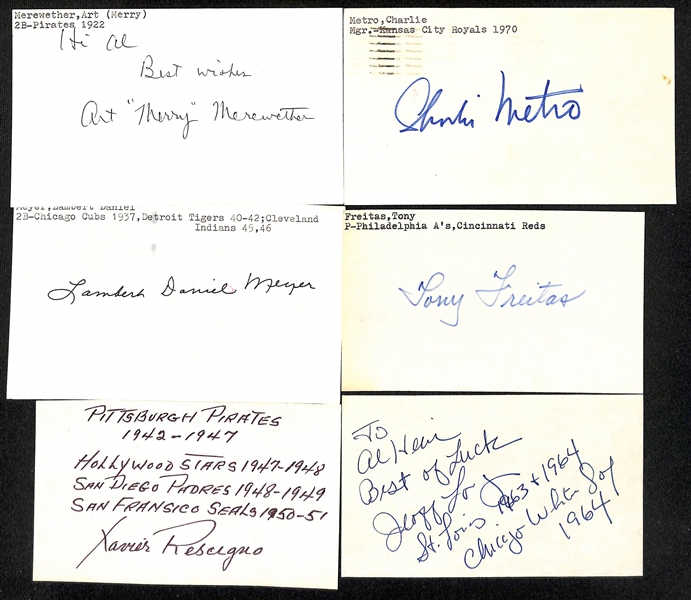 Merewether,Art (Merry)
2B-Pirates 1922
Hi Al
Best wishes
Art "Merry" Merewether
Metro,Charlie
Mgr.-Kansas City Royals 1970
Charlie Metro
Meyer,Lambert Daniel
2B-Chicago Cubs 1937,Detroit Tigers 40-42;Cleveland
Indians 45,46
Lambert Daniel Meyer
Freitas,Tony
P-Philadelphia A's,Cincinnati Reds
Tony Freitas
PITTSBURGH PIRATES
1942-1947
HOLLYWOOD STARS 1947-1948
SAN DIEGO PADRES 1948-1949
SAN FRANSICO SEALS 1950-51
Xavier Rescigno
To
Al
Best of Luck
Jeoff Long
St. Louis 1963 + 1964
Chicago White Sox
1964